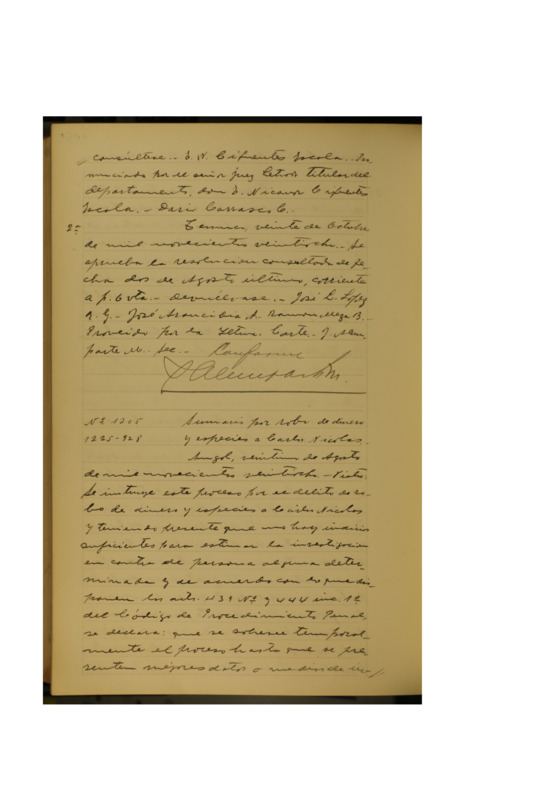 consúltese.- D. N. Cifuentes Jscola. Pro
nunciado por el señor juez letrado titular del
departamento, don D. Nicanor Cifuentes
Jscola. - Dario Carrasco C.-
2ª Temuco, veinte de Octubre
de mil novecientos veintiocho.- Se
aprueba la resolucion consultada de fe-
cha dos de Agosto último, corriente
a f. 6 vta.- Devuélvase.- José L. López
A. G.- José Arancibia A. Ramón Meza B.-
Proveido por la Iltma. Corte.- J. Alem
parte M. Sec.- Conforme
J Alemparte M.
Nº 1205 Sumario por robo de dinero
1225-928 y especies a Carlos Nicolas.
Angol, veintiuno de Agosto
de mil novecientos veintiocho.- Vistos:
Se instruye este proceso por el delito de ro-
bo de dinero y especies a Carlos Nicolas
y teniendo presente que no hay indicios
suficientes para estimar la investigacion
en contra de persona alguna deter-
minada y de acuerdo con lo que dis-
ponen los arts. 439 Nº y 444 inc. 1º
del Código de Procedimiento Penal,
se declara: que se sobresee temporal-
mente el proceso hasta que se pre-
senten mejores datos o medios de in-